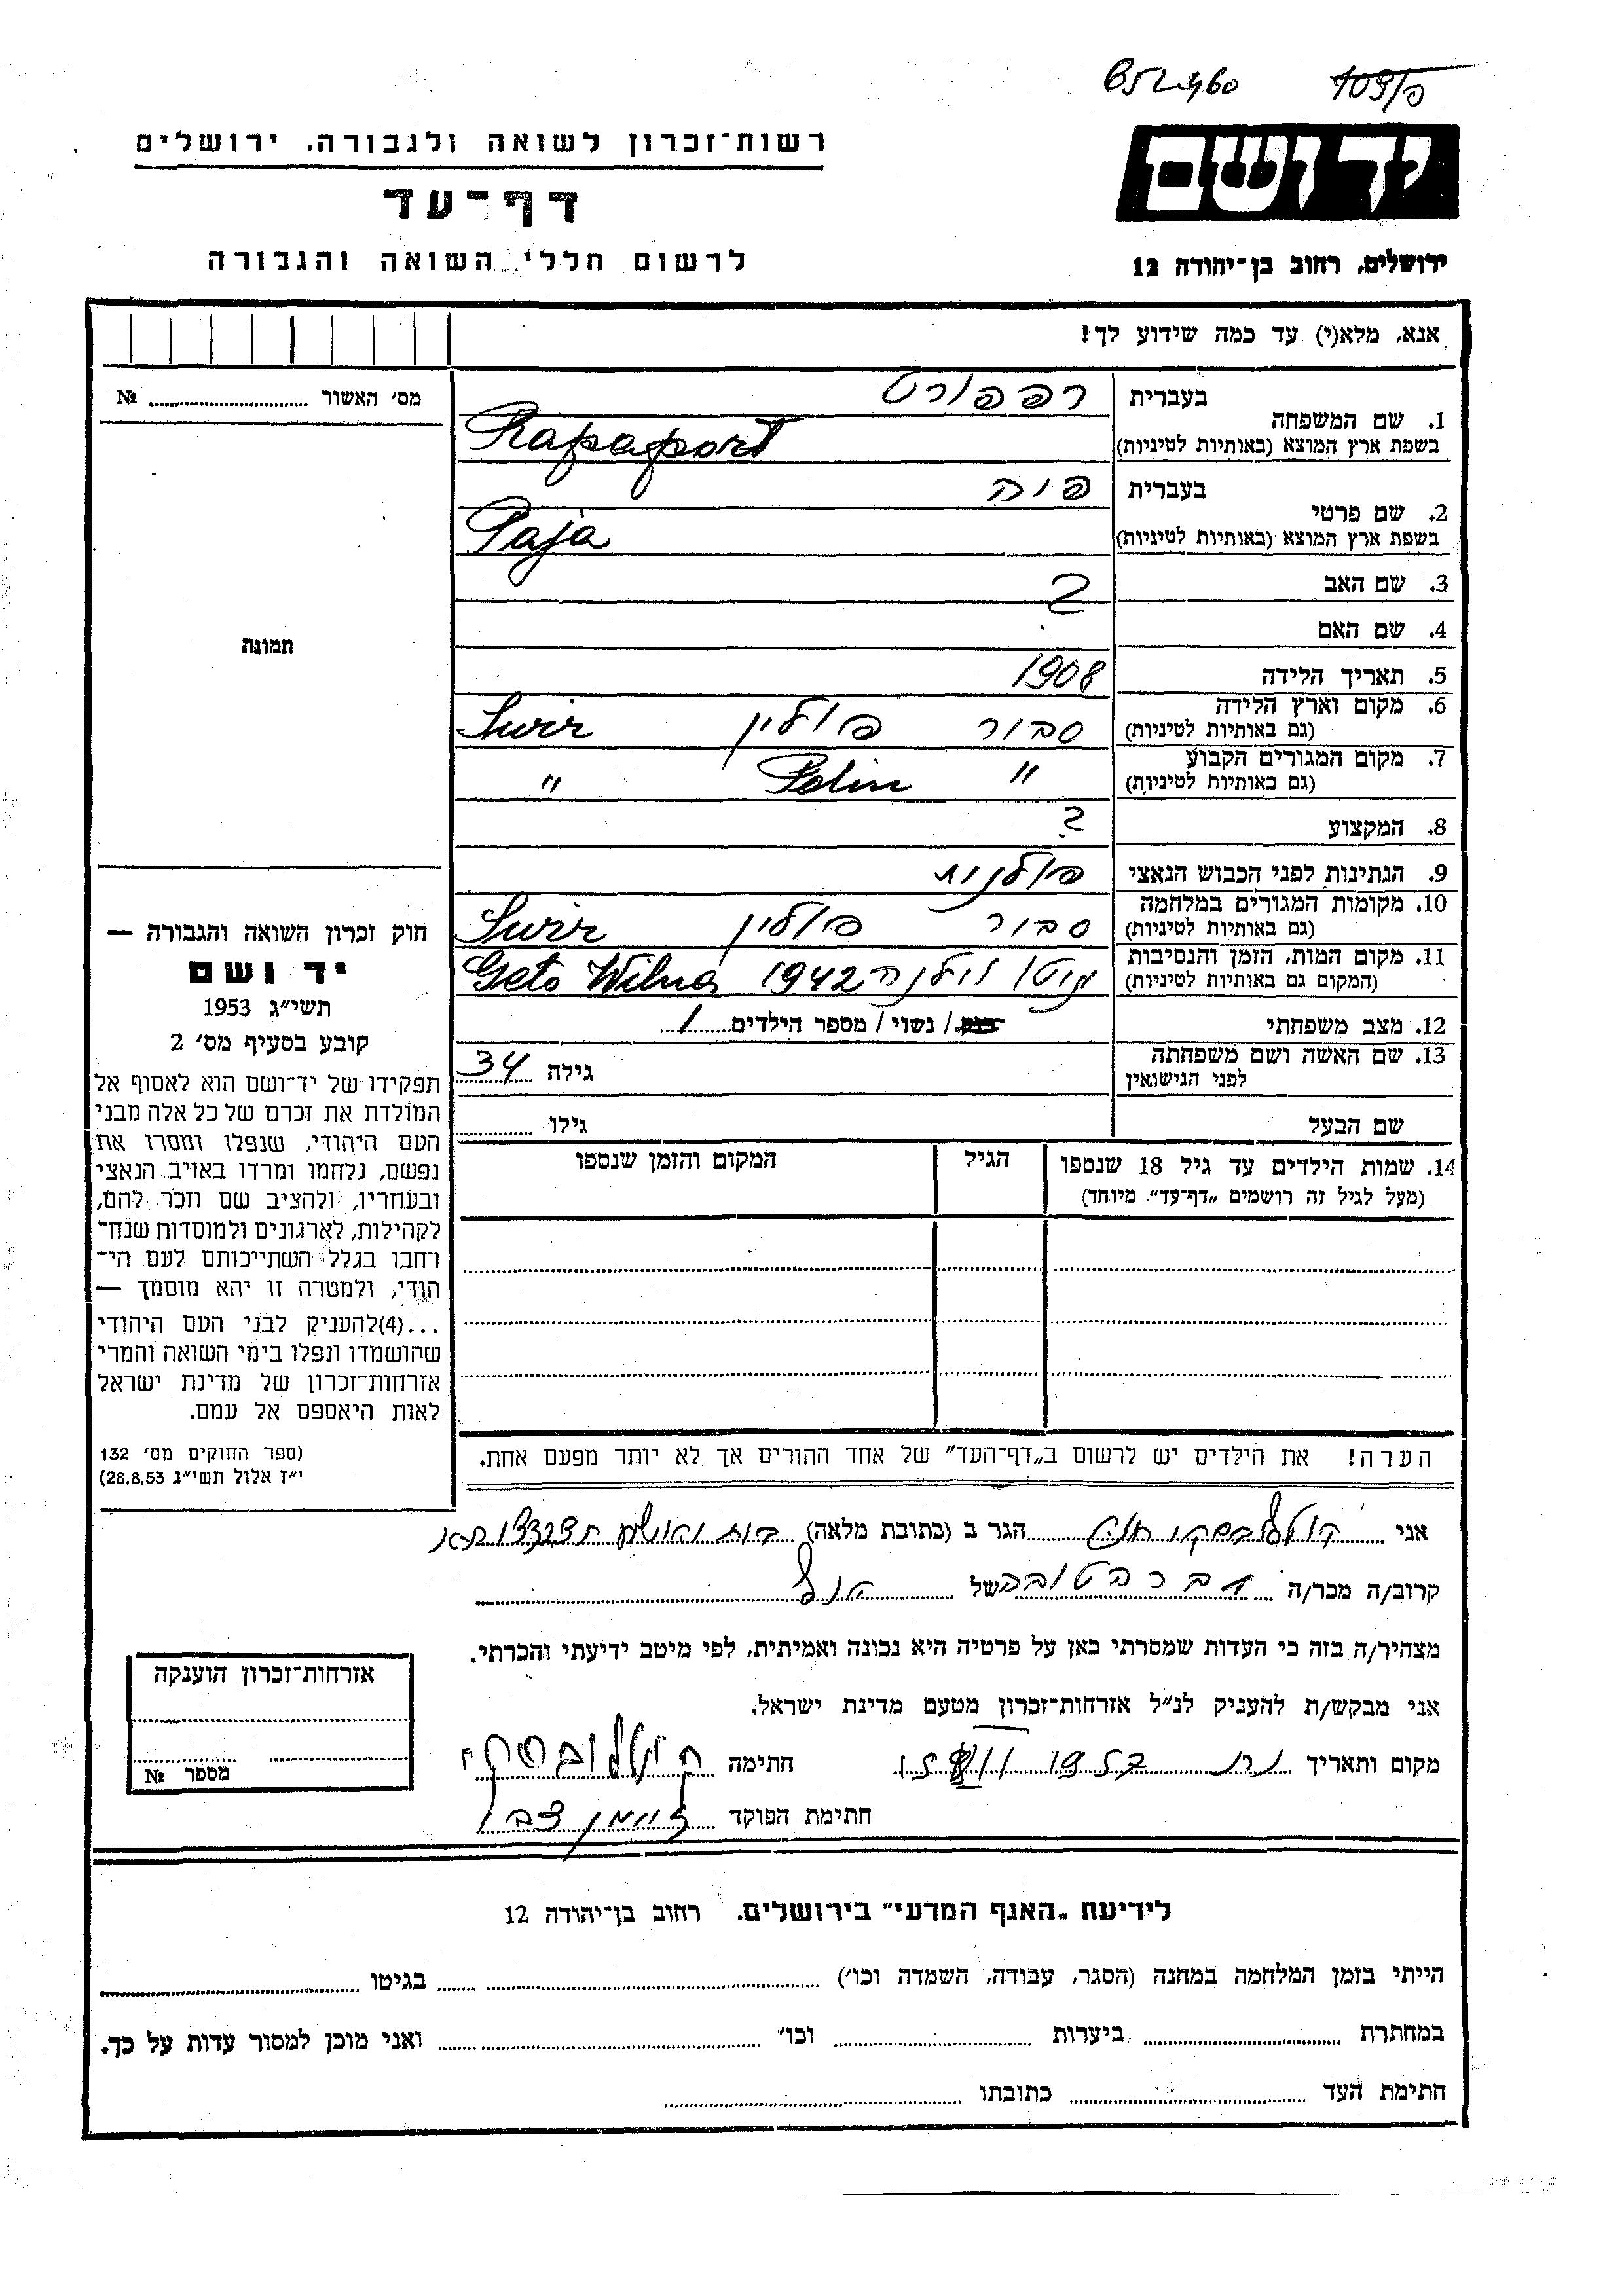 רשות־זכרון לשואה ולגבורה, ירושלים
דף־עד
לרשום חללי השואה והגבורה
יד ושם
ירושלים, רחוב בן־יהודה 12
אנא, מלא(י) עד כמה שידוע לך!
מס׳ האשור № ........
תמונה
1. שם המשפחה
בעברית רפפורט
בשפת ארץ המוצא (באותיות לטיניות) Rapaport
2. שם פרטי
בעברית פיה
בשפת ארץ המוצא (באותיות לטיניות) Paja
3. שם האב ?
4. שם האם
5. תאריך הלידה 1908
6. מקום וארץ הלידה פולין Swir
(גם באותיות לטיניות)
7. מקום המגורים הקבוע " Polin "
(גם באותיות לטיניות)
8. המקצוע ?
9. הנתינות לפני הכבוש הנאצי פולנית
10. מקומות המגורים במלחמה פולין Swir
(גם באותיות לטיניות)
11. מקום המות, הזמן והנסיבות גיטו וילנה 1942 Geto Wilna
(המקום גם באותיות לטיניות)
12. מצב משפחתי רוק / נשוי / מספר הילדים 1
13. שם האשה ושם משפחתה
לפני הנישואין
גילה 34
שם הבעל
גילו ........
14. שמות הילדים עד גיל 18 שנספו
(מעל לגיל זה רושמים „דף־עד״ מיוחד)
הגיל
המקום והזמן שנספו
הערה! את הילדים יש לרשום ב„דף־העד״ של אחד ההורים אך לא יותר מפעם אחת.
חוק זכרון השואה והגבורה —
יד ושם
תשי״ג 1953
קובע בסעיף מס׳ 2
תפקידו של יד־ושם הוא לאסוף אל
המולדת את זכרם של כל אלה מבני
העם היהודי, שנפלו ומסרו את
נפשם, נלחמו ומרדו באויב הנאצי
ובעוזריו, ולהציב שם וזכר להם,
לקהילות, לארגונים ולמוסדות שנח־
רחבו בגלל השתייכותם לעם הי־
הודי, ולמטרה זו יהא מוסמך —
...(4)להעניק לבני העם היהודי
שהושמדו ונפלו בימי השואה והמרי
אזרחות־זכרון של מדינת ישראל
לאות היאספם אל עמם.
(ספר החוקים מס׳ 132
י״ז אלול תשי״ג 28.8.53)
אני הגר ב (כתובת מלאה)
קרוב/ה מכר/ה של
מצהיר/ה בזה כי העדות שמסרתי כאן על פרטיה היא נכונה ואמיתית, לפי מיטב ידיעתי והכרתי.
אני מבקש/ת להעניק לנ״ל אזרחות־זכרון מטעם מדינת ישראל.
מקום ותאריך חתימה
חתימת הפוקד
אזרחות־זכרון הוענקה
מספר №
לידיעת „האגף המדעי״ בירושלים, רחוב בן־יהודה 12
הייתי בזמן המלחמה במחנה (הסגר, עבודה, השמדה וכו׳) ........ בגיטו ........
במחתרת ........ ביערות ........ וכו׳ ........ ואני מוכן למסור עדות על כך.
חתימת העד ........ כתובתו ........